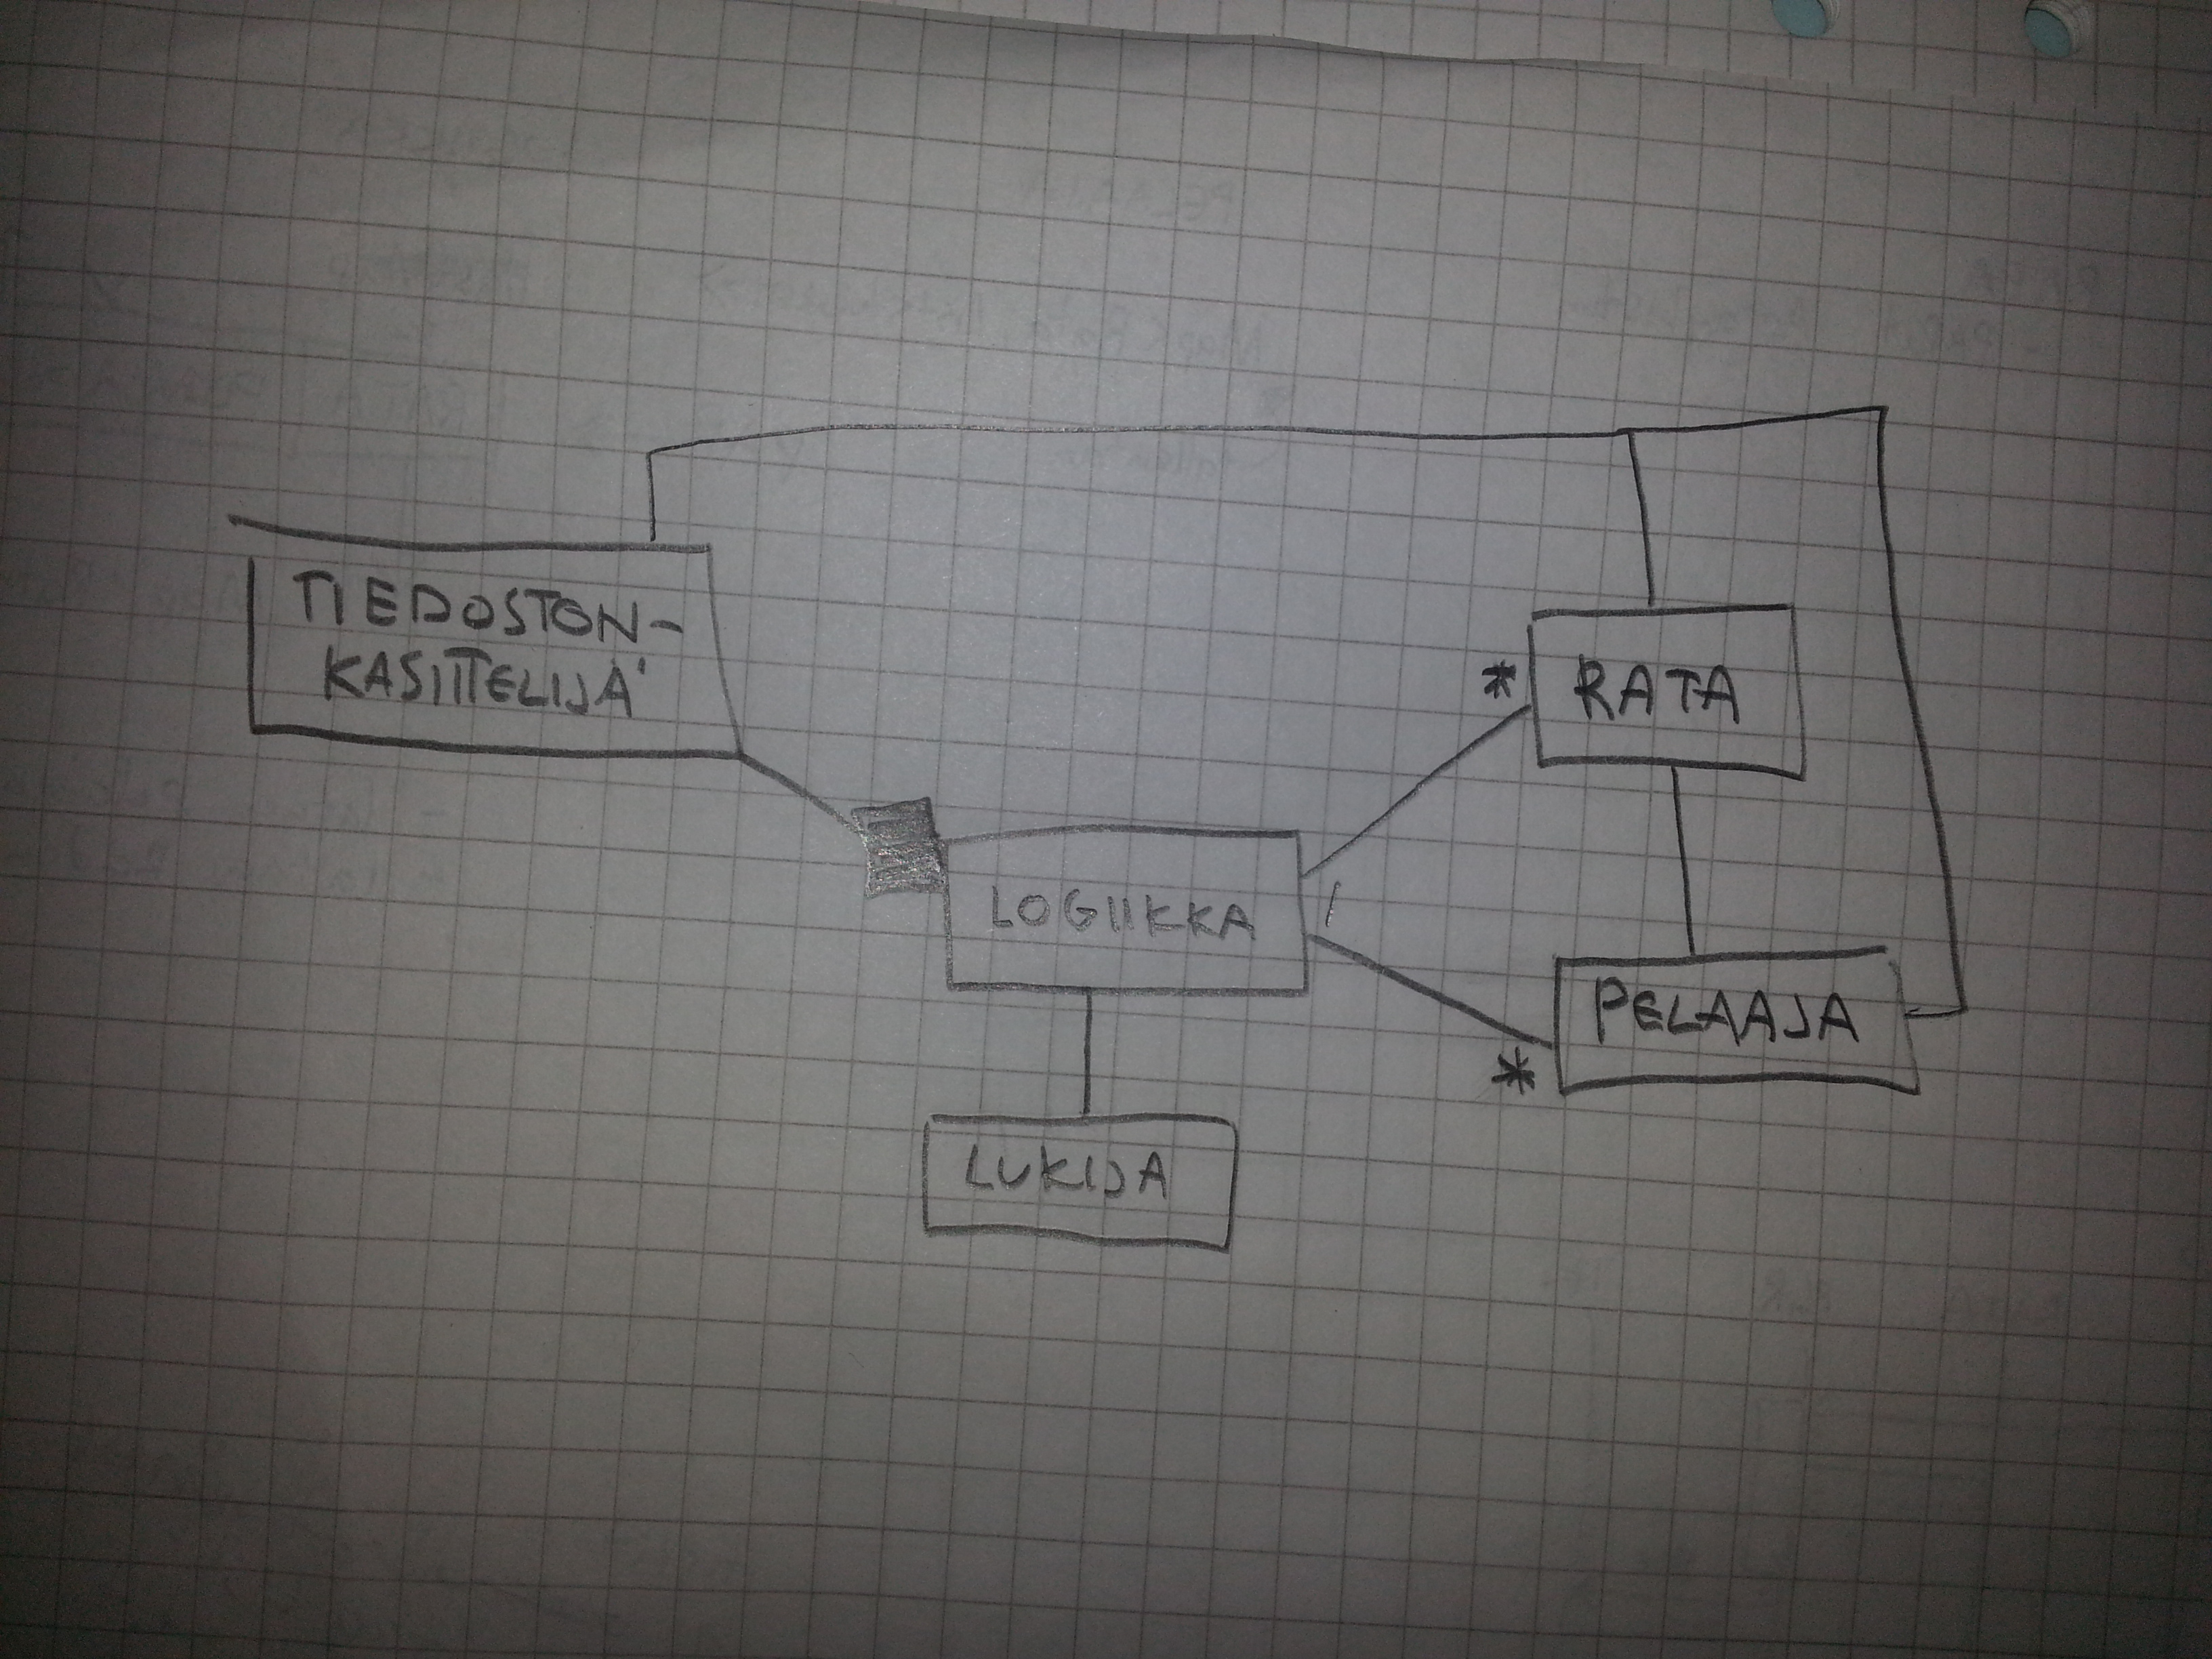 TIEDOSTON-
KASITTELIJÄ
* RATA
LOGIIKKA 1
PELAAJA
*
LUKIJA